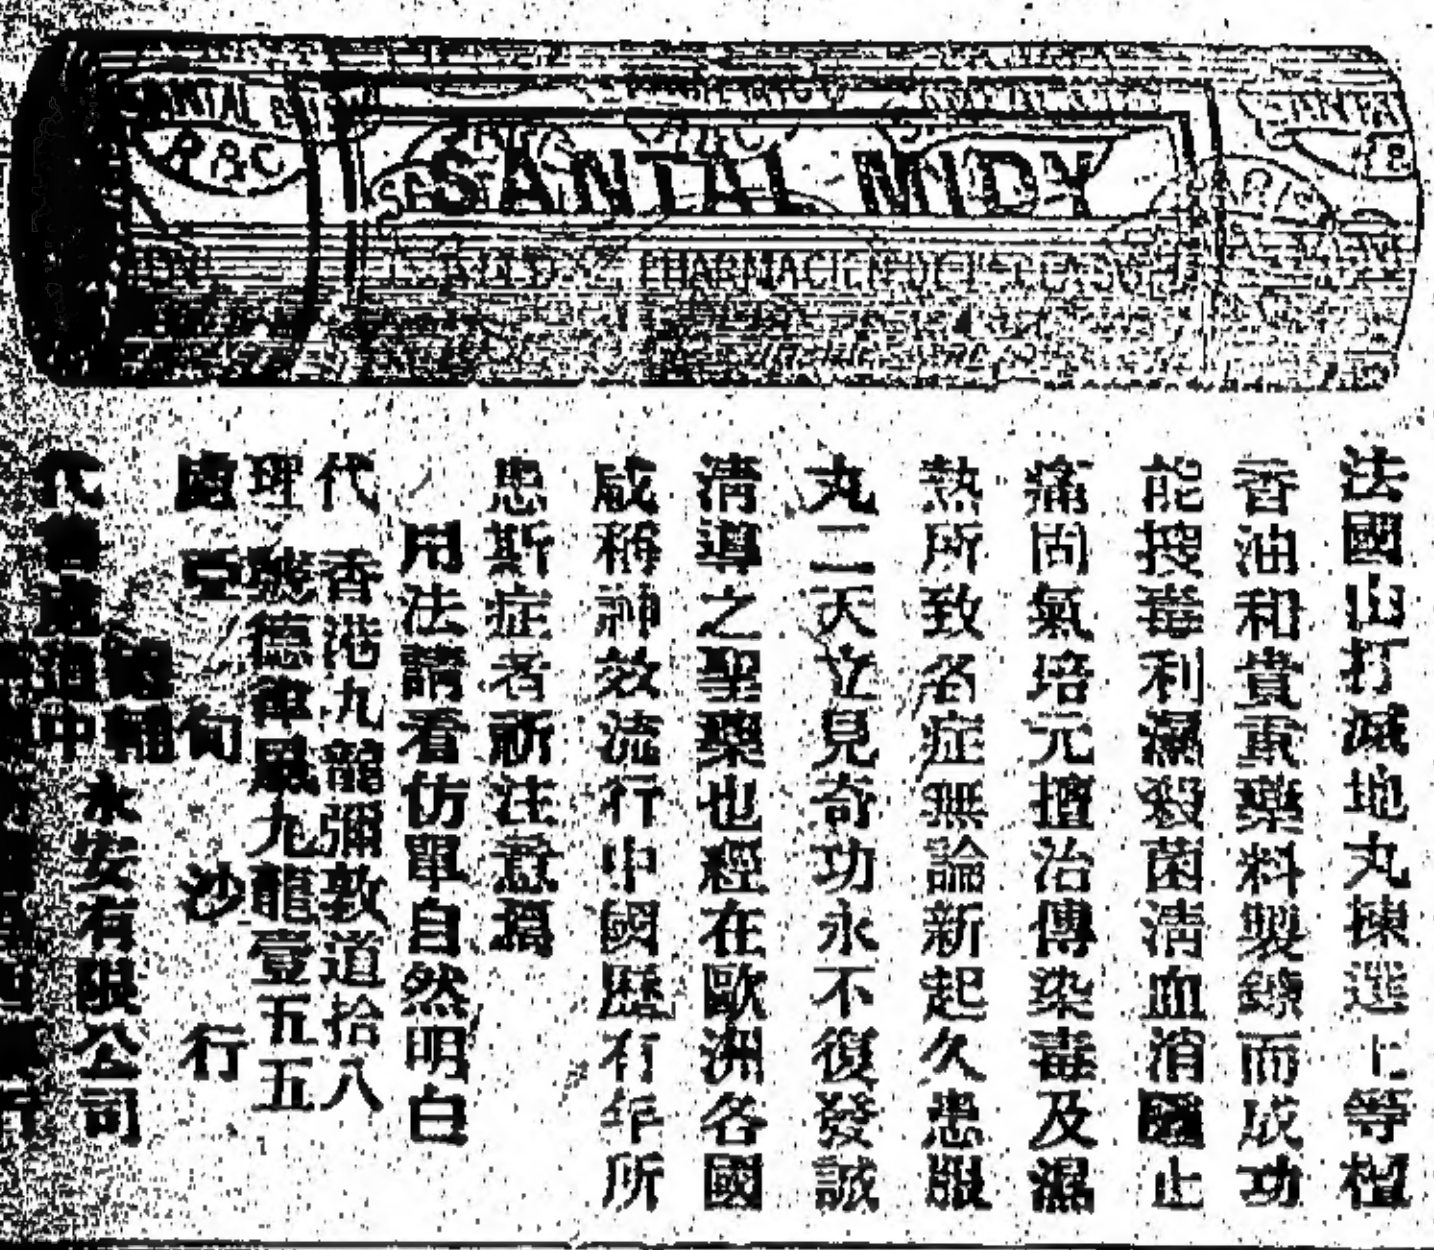 SANTAL MIDY
R&C
PHARMACIEN DE 1re CLASSE
法國山打滅地丸揀選上等檀
香油和貴重藥料製鍊而成功
能搜毒利濕殺菌清血消 止
痛固氣培元擅治傳染毒及濕
熱所致各症無論新起久患服
丸二天立見奇功永不復發誠
清導之聖藥也經在歐洲各國
咸稱神效流行中國歷有年所
患斯症者祈注意焉
用法請看仿單自然明白
代理處
香港九龍彌敦道拾八
號德律風九龍壹五五
亞旬沙行
代售處
中
永安有限公司